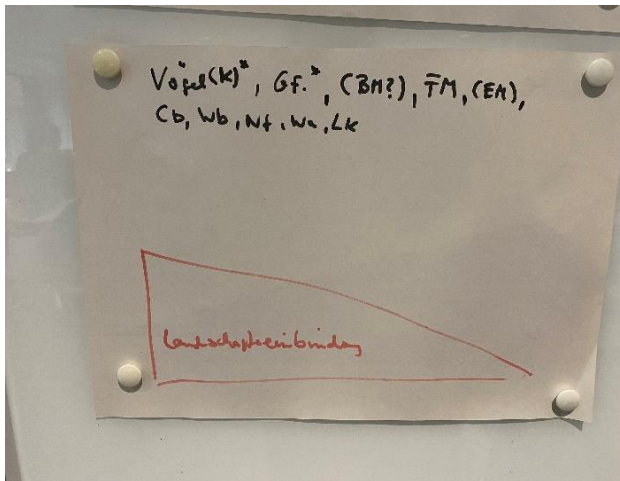 Vögel(k)*, Gf.*, (BM?), FM, (EM),
Cb, Wb, Nf, Wa, Lk
Landschaftseinbindung